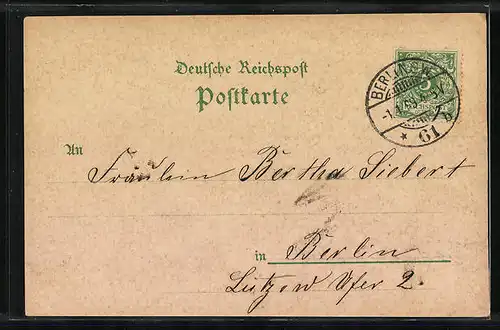 Deutsche Reichspost
Postkarte
BERLIN S.W.
* 61 b
An
Fräulein Bertha Siebert
in Berlin
Lützow Ufer 2.